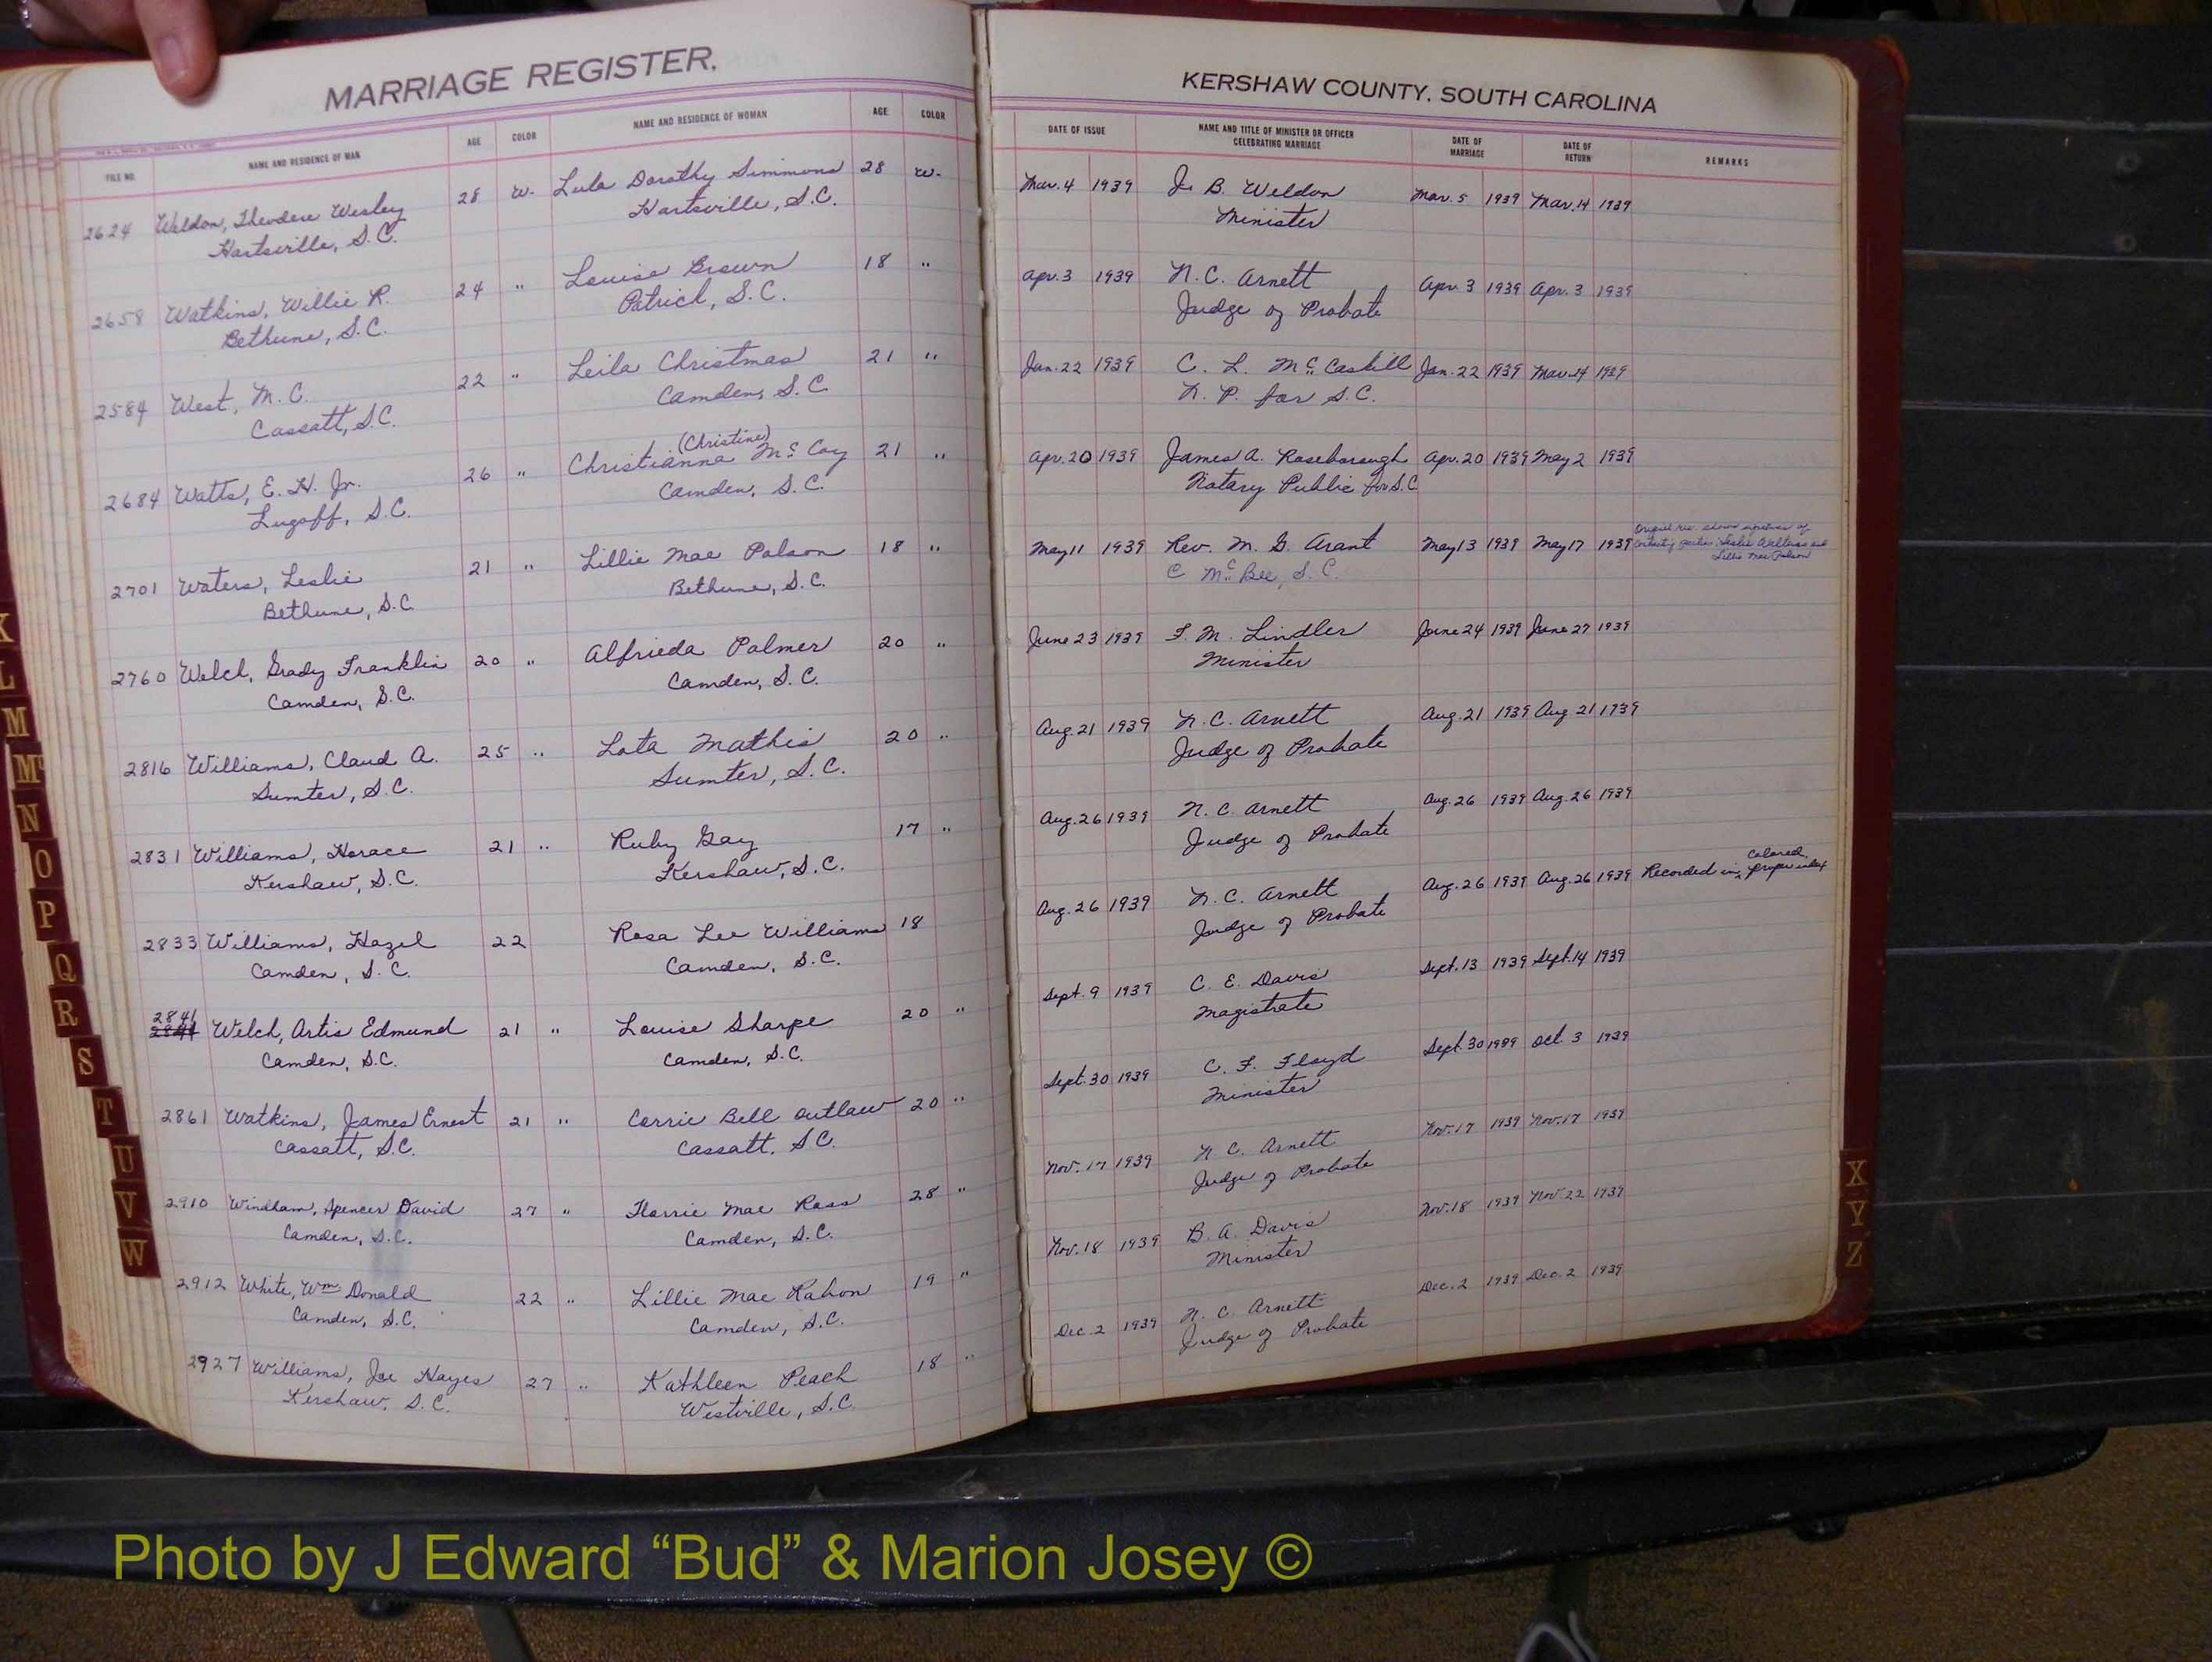 MARRIAGE REGISTER.
FILE NO. NAME AND RESIDENCE OF MAN AGE COLOR NAME AND RESIDENCE OF WOMAN AGE COLOR
2624 Weldon, Theodore Wesley 28 W. Lula Dorothy Simmons 28 W.
Hartsville, S.C. Hartsville, S.C.
2658 Watkins, Willie R. 24 " Louise Brown 18 "
Bethune, S.C. Patrick, S.C.
2584 West, M. C. 22 " Leila Christmas 21 "
Cassatt, S.C. Camden, S.C.
(Christine)
2684 Watts, E. H. Jr. 26 " Christianna McCoy 21 "
Lugoff, S.C. Camden, S.C.
2701 Waters, Leslie 21 " Lillie Mae Polson 18 "
Bethune, S.C. Bethune, S.C.
2760 Welch, Grady Franklin 20 " Alfrieda Palmer 20 "
Camden, S.C. Camden, S.C.
2816 Williams, Claud A. 25 " Lota Mathis 20 "
Sumter, S.C. Sumter, S.C.
2831 Williams, Horace 21 " Ruby Gay 17 "
Kershaw, S.C. Kershaw, S.C.
2833 Williams, Hazel 22 Rosa Lee Williams 18
Camden, S.C. Camden, S.C.
2841
Welch, Artis Edmund 21 " Louise Sharpe 20 "
Camden, S.C. Camden, S.C.
2861 Watkins, James Ernest 21 " Carrie Bell Outlaw 20 "
Cassatt, S.C. Cassatt, S.C.
2910 Windham, Spencer David 27 " Florrie Mae Ross 28 "
Camden, S.C. Camden, S.C.
2912 White, Wm Donald 22 " Lillie Mae Rabon 19 "
Camden, S.C. Camden, S.C.
2927 Williams, Joe Hayes 27 " Kathleen Peach 18 "
Kershaw, S.C. Westville, S.C.
KERSHAW COUNTY, SOUTH CAROLINA
DATE OF ISSUE NAME AND TITLE OF MINISTER OR OFFICER CELEBRATING MARRIAGE DATE OF MARRIAGE DATE OF RETURN REMARKS
Mar. 4 1939 J. B. Weldon Mar. 5 1939 Mar. 14 1939
Minister
Apr. 3 1939 N. C. Arnett Apr. 3 1939 Apr. 3 1939
Judge of Probate
Jan. 22 1939 C. L. McCaskill Jan. 22 1939 Mar. 14 1939
N. P. for S.C.
Apr. 20 1939 James A. Roseborough Apr. 20 1939 May 2 1939
Notary Public for S.C.
May 11 1939 Rev. M. G. Arant May 13 1939 May 17 1939
C McBee, S.C. contracting parties: Leslie
Lillie Mae Polson
June 23 1939 F. M. Lindler June 24 1939 June 27 1939
Minister
Aug. 21 1939 N. C. Arnett Aug. 21 1939 Aug. 21 1939
Judge of Probate
Aug. 26 1939 N. C. Arnett Aug. 26 1939 Aug. 26 1939
Judge of Probate
Colored
Aug. 26 1939 N. C. Arnett Aug. 26 1939 Aug. 26 1939 Recorded in proper index
Judge of Probate
Sept. 9 1939 C. E. Davis Sept. 13 1939 Sept. 14 1939
Magistrate
Sept. 30 1939 C. F. Floyd Sept. 30 1939 Oct. 3 1939
Minister
Nov. 17 1939 N. C. Arnett Nov. 17 1939 Nov. 17 1939
Judge of Probate
Nov. 18 1939 B. A. Davis Nov. 18 1939 Nov. 22 1939
Minister
Dec. 2 1939 N. C. Arnett Dec. 2 1939 Dec. 2 1939
Judge of Probate
L
M
Mc
N
O
P
Q
R
S
T
U
V
W
X
Y
Z
Photo by J Edward “Bud” & Marion Josey ©